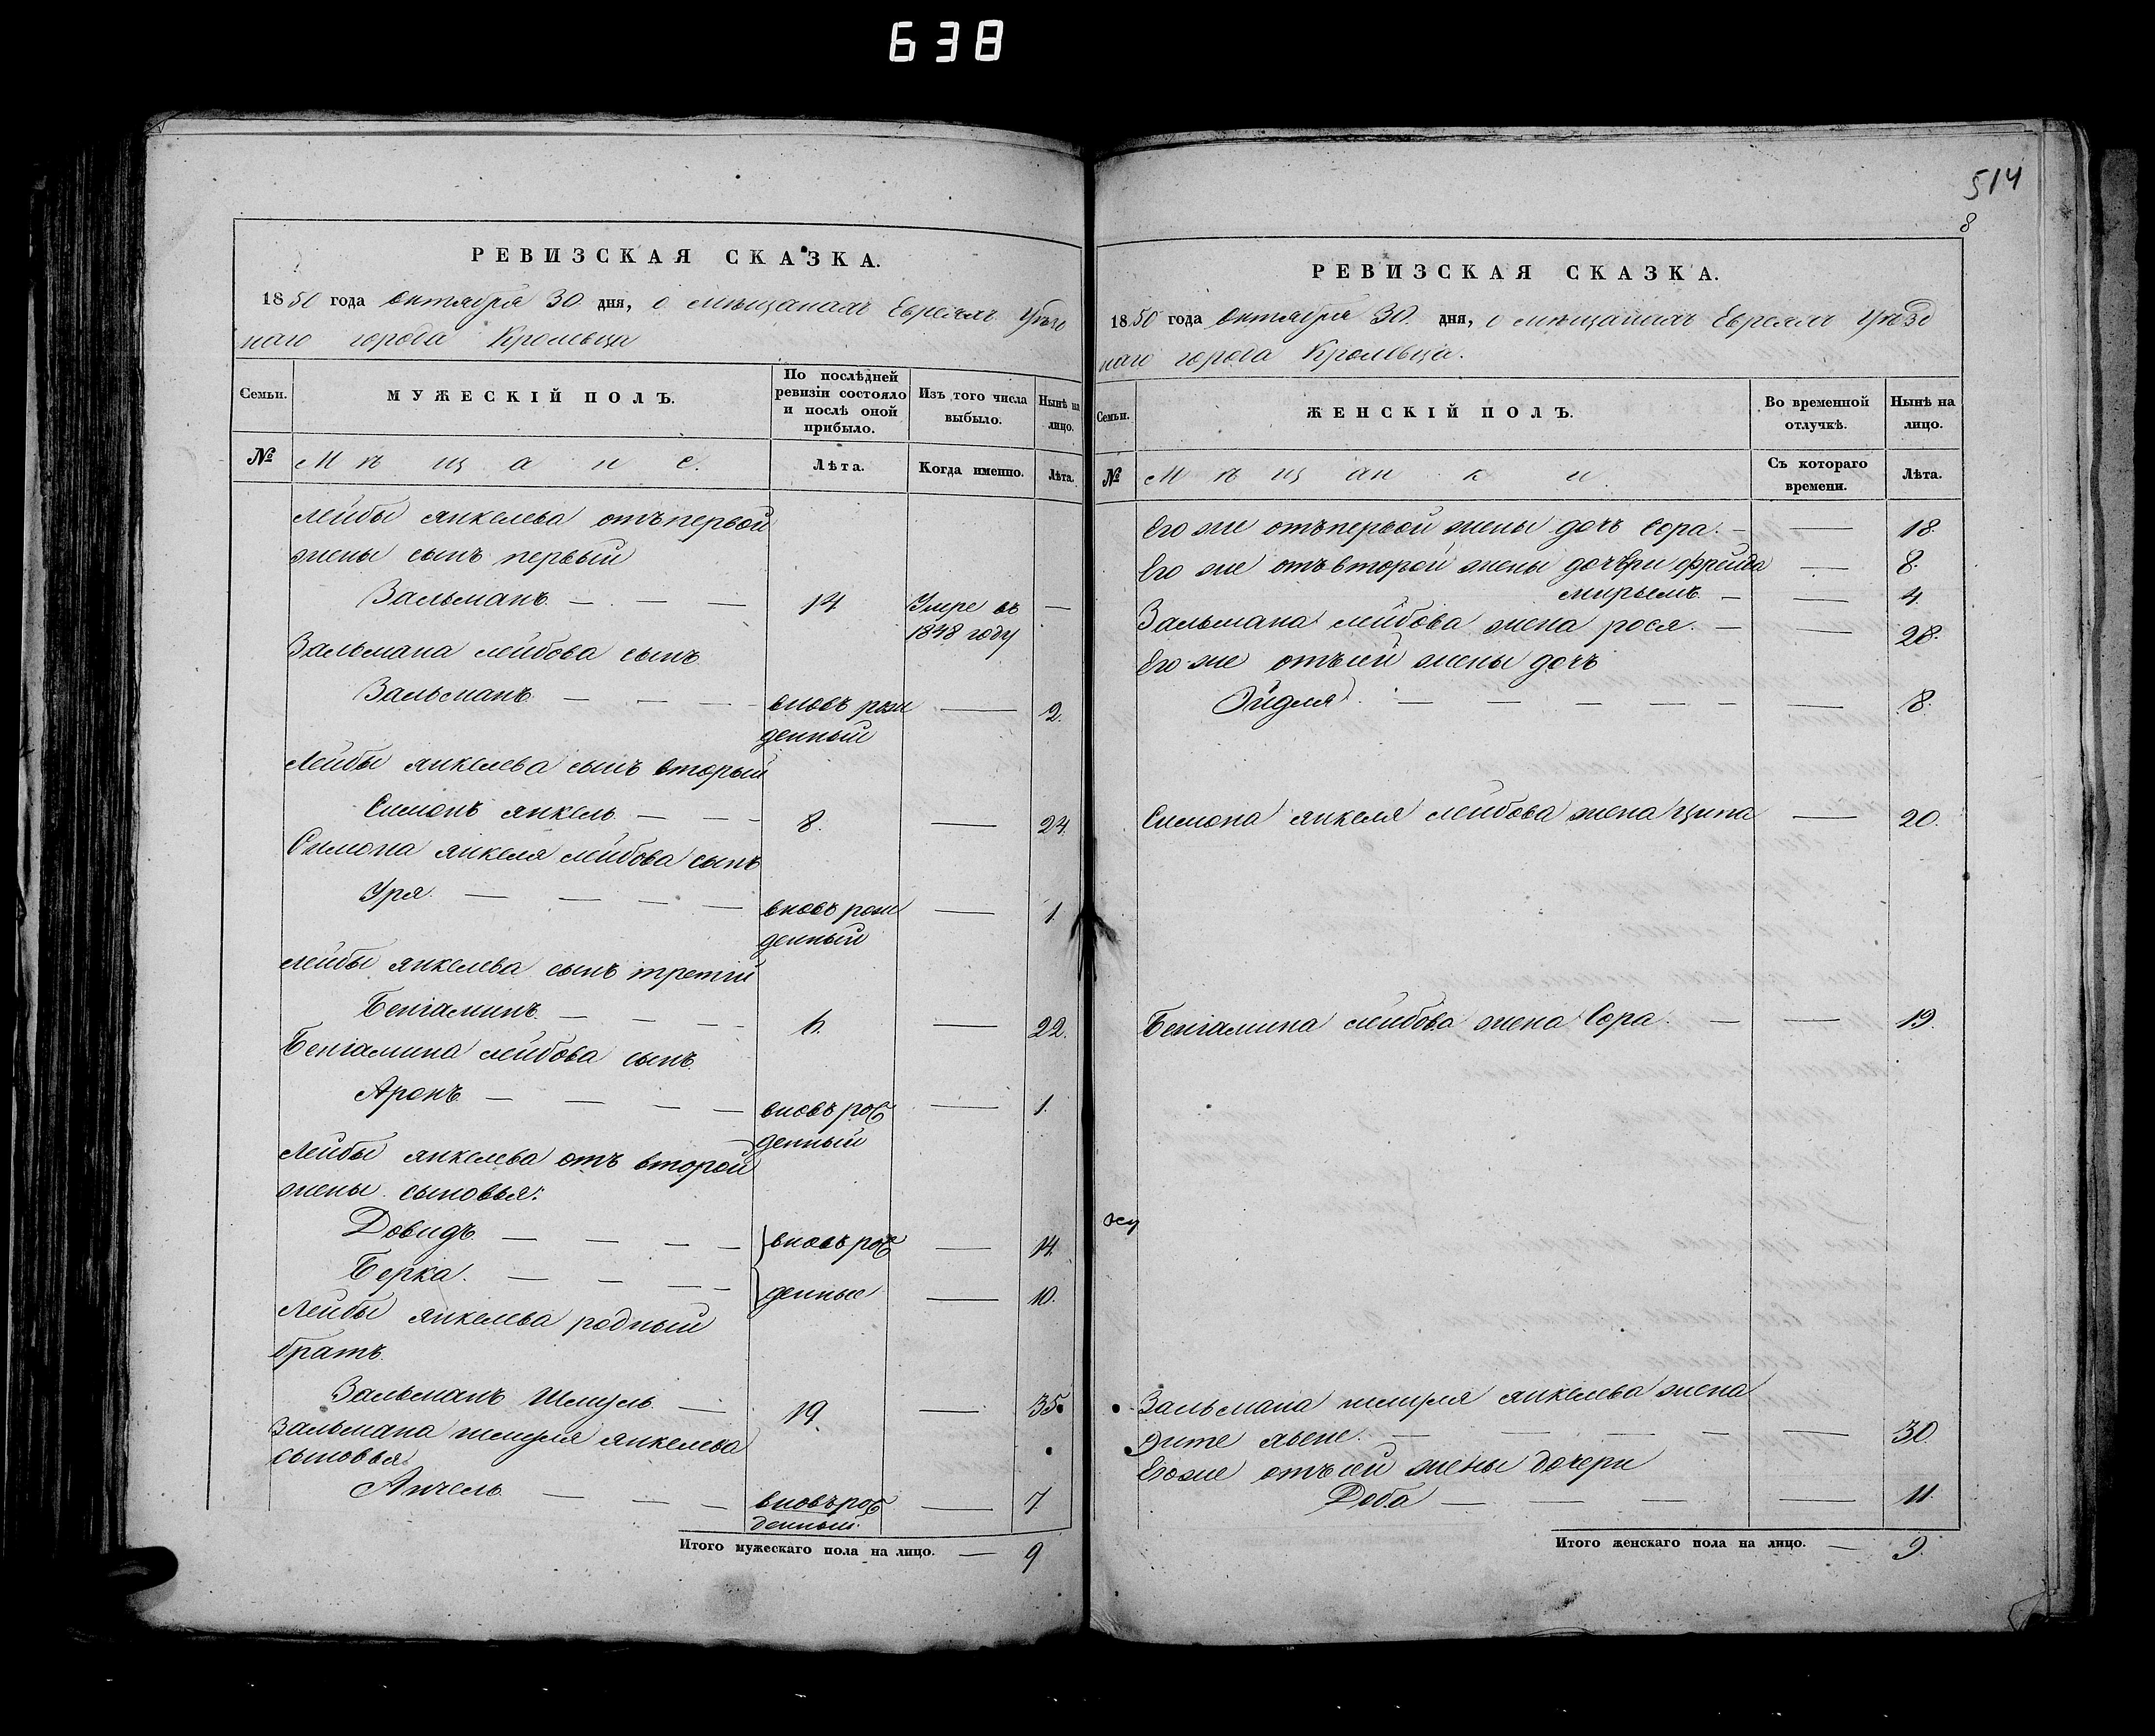 638
РЕВИЗСКАЯ СКАЗКА.
1850 года Октября 30 дня, о мѣщанахъ Евреяхъ Уѣзд
наго города Кролевца
Семьи.
МУЖЕСКІЙ ПОЛЪ.
По послѣдней
ревизіи состояло
и послѣ оной
прибыло.
Изъ того числа
выбыло.
Нынѣ на
лицо.
№
Мѣщане.
Лѣта.
Когда именно.
Лѣта.
Лейбы Янкелева отъ первой
жены сынъ первый
Зальманъ — — — 14 Умре въ —
1848 году
Зальмана Лейбова сынъ
Зальманъ — — — вновь рож — 2.
денный
Лейбы Янкелева сынъ вторый
Симонъ Янкель — — — 8. — 24.
Симона Янкеля Лейбова сынъ
Уря — — — — вновь рож — 1.
денный
Лейбы Янкелева сынъ третій
Беніаминъ — — — 6. — 22.
Беніамина Лейбова сынъ
Аронъ — — — — вновь рож — 1.
денный
Лейбы Янкелева отъ второй
жены сыновья:
Довидъ — — — — вновь рож — 14.
Берка — — — — денные — 10.
Лейбы Янкелева родный
братъ
Зальманъ Шмуль — 19. — 35.
Зальмана Шмуля Янкелева
сыновья
Анчель — — — вновь рож — 7
денный.
Итого мужескаго пола на лицо. — 9
514
8
РЕВИЗСКАЯ СКАЗКА.
1850 года Октября 30. дня, о мѣщанахъ Евреяхъ Уѣзд
наго города Кролевца.
Семьи.
ЖЕНСКІЙ ПОЛЪ.
Во временной
отлучкѣ.
Нынѣ на
лицо.
№
Мѣщанки.
Съ котораго
времени.
Лѣта.
Его же отъ первой жены дочь Сора. — — 18.
Его же отъ второй жены дочери Фрейда — 8.
Мирьямъ — — 4.
Зальмана Лейбова жена Рося. — — 28.
Его же отъ сей жены дочь
Эйдля. — — — — — — — 8.
Симона Янкеля Лейбова жена Ципа — 20.
Беніамина Лейбова жена Сора. — — 19.
Зальмана Шмуля Янкелева жена
— — — — — 30.
Его же отъ сей жены дочери
Доба — — — — 11.
Итого женскаго пола на лицо. — 9.